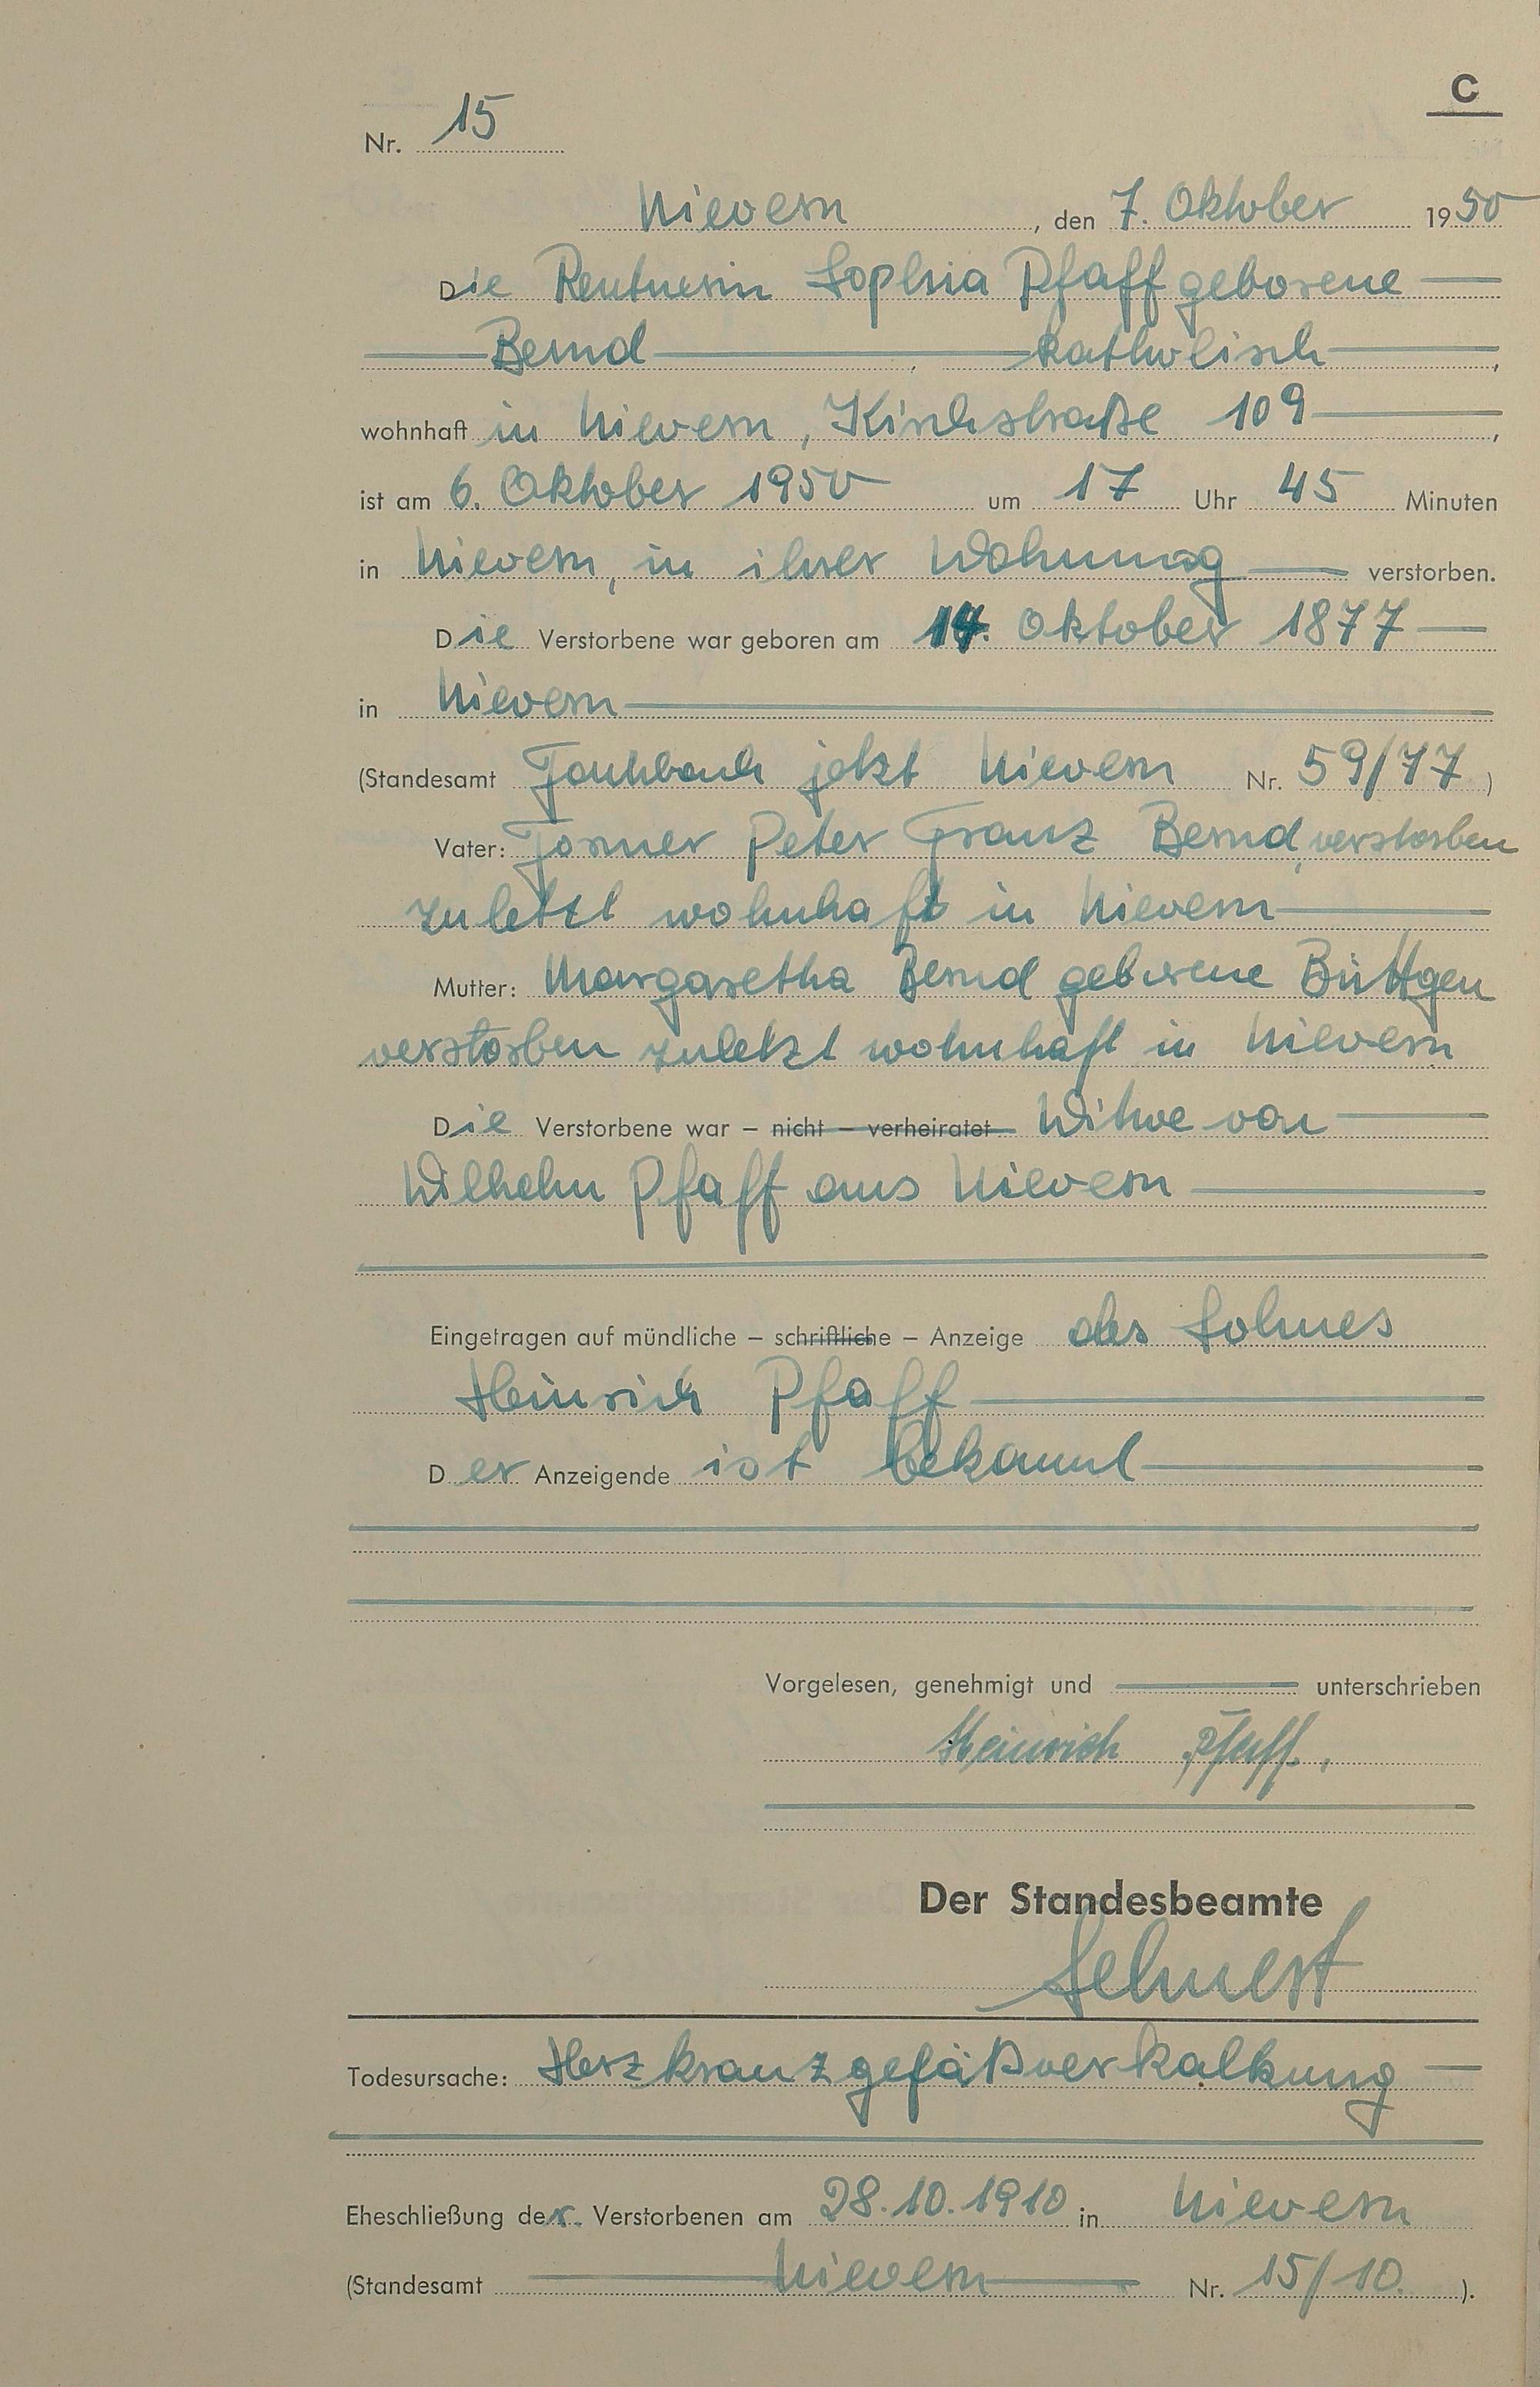 C
Nr. 15
Nievern, den 7. Oktober 1950
Die Rentnerin Sophia Pfaff geborene
Bernd, katholisch,
wohnhaft in Nievern, Kirchstraße 109,
ist am 6. Oktober 1950 um 17 Uhr 45 Minuten
in Nievern, in ihrer Wohnung verstorben.
Die Verstorbene war geboren am 14. Oktober 1877
in Nievern
(Standesamt Fachbach jetzt Nievern Nr. 59/77)
Vater: Former Peter Franz Bernd, verstorben
zuletzt wohnhaft in Nievern
Mutter: Margaretha Bernd geborene Büttgen
verstorben zuletzt wohnhaft in Nievern
Die Verstorbene war – nicht – verheiratet Witwe von
Wilhelm Pfaff aus Nievern
Eingetragen auf mündliche – schriftliche – Anzeige des Sohnes
Heinrich Pfaff
Der Anzeigende ist bekannt
Vorgelesen, genehmigt und unterschrieben
Heinrich Pfaff.
Der Standesbeamte
Todesursache: Herzkranzgefäßverkalkung
Eheschließung der Verstorbenen am 28.10.1910 in Nievern
(Standesamt Nievern Nr. 15/10.).